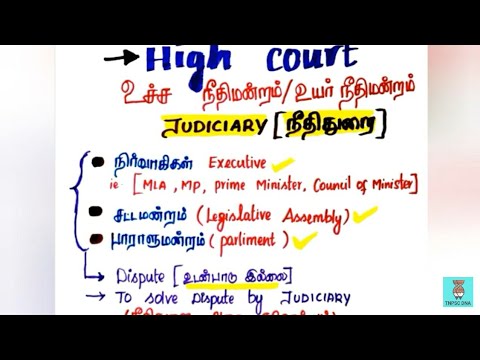 → High court
உச்ச நீதிமன்றம்/உயர் நீதிமன்றம்
JUDICIARY [நீதிதுறை]
நிர்வாகிகள் Executive
ie. [MLA, MP, prime Minister, Council of Minister]
சட்டமன்றம் (Legislative Assembly)
பாராளுமன்றம் (parliment)
→ Dispute [உடன்பாடு இல்லை]
→ To solve Dispute by JUDICIARY
TNPSC DNA